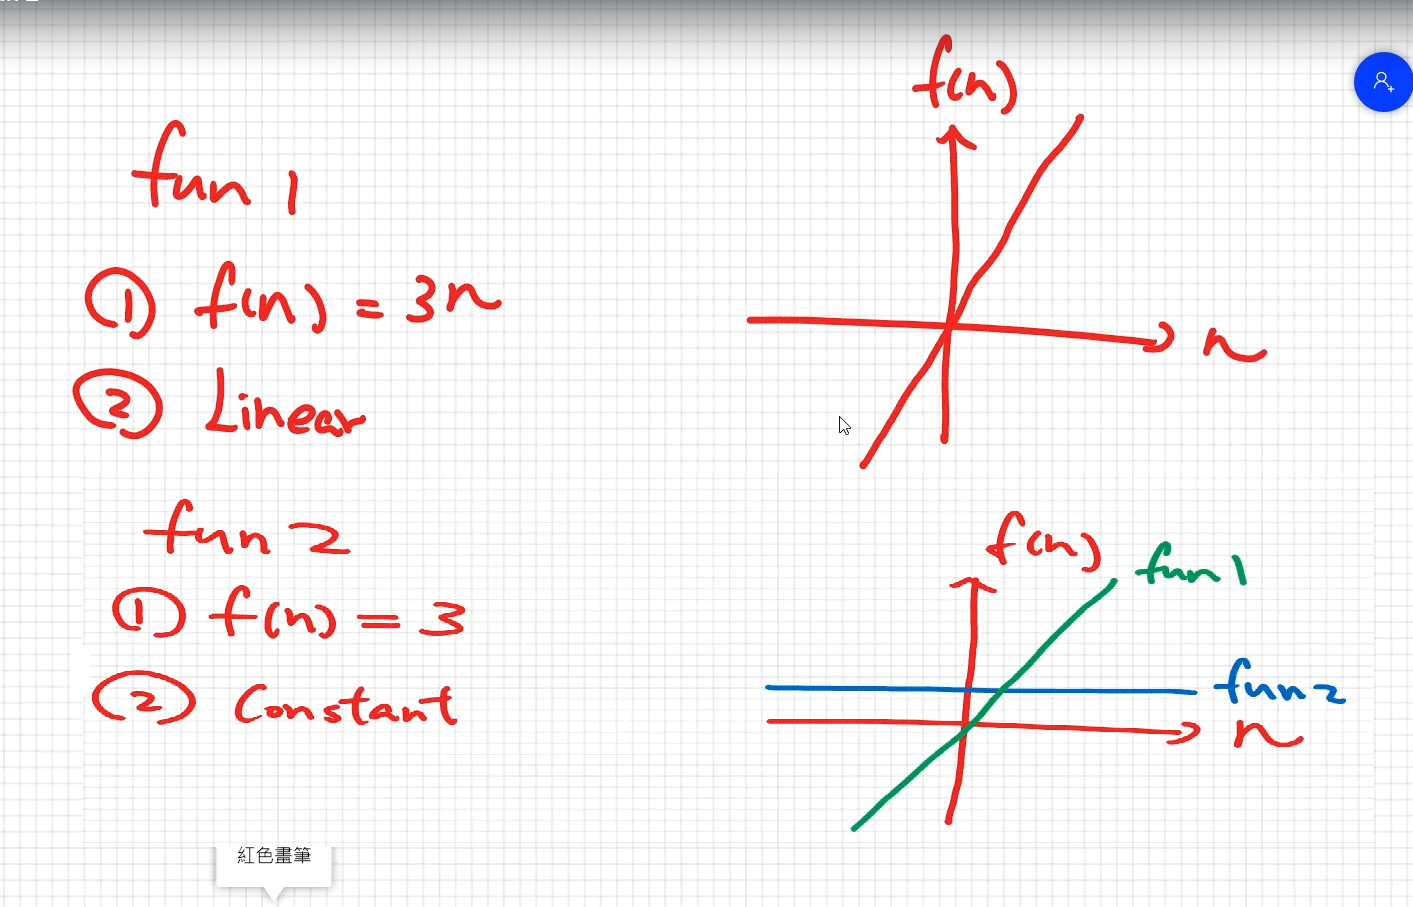 fun 1
① f(n) = 3n
② Linear
f(n)
n
fun 2
① f(n) = 3
② Constant
f(n)
fun 1
fun 2
n
紅色畫筆